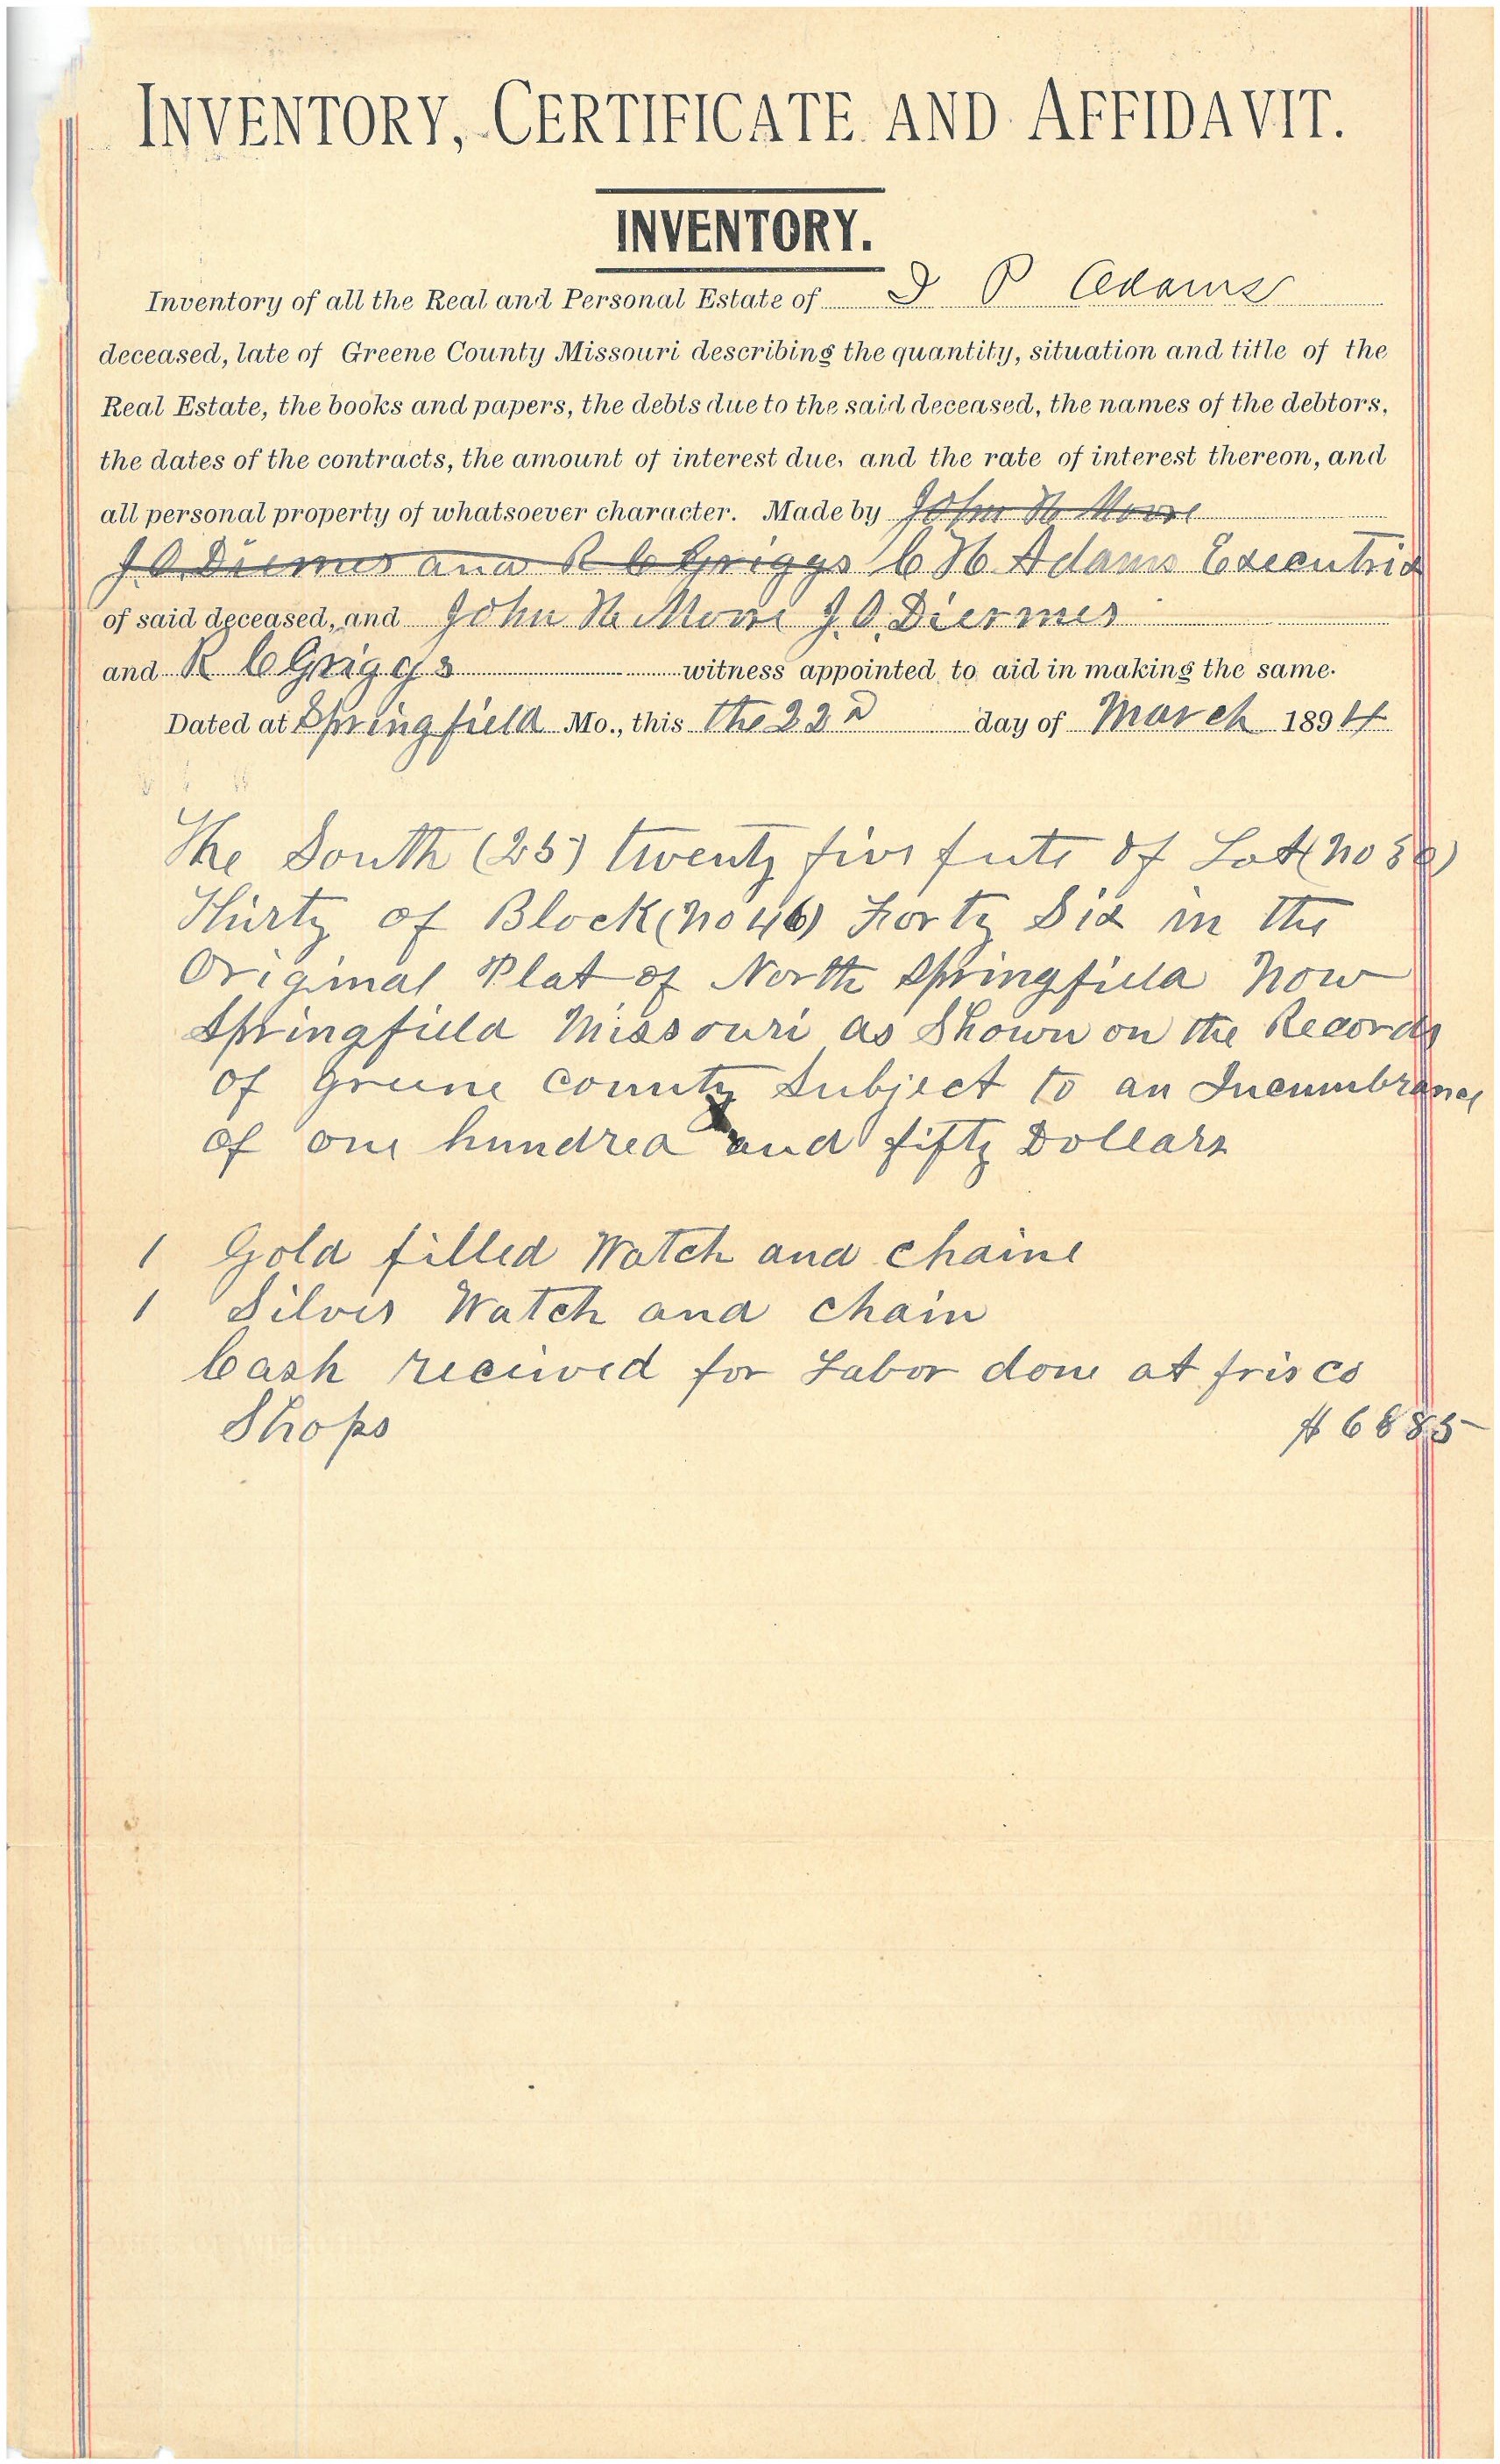 INVENTORY, CERTIFICATE AND AFFIDAVIT.
INVENTORY.
Inventory of all the Real and Personal Estate of P Adams
deceased, late of Greene County Missouri describing the quantity, situation and title of the
Real Estate, the books and papers, the debts due to the said deceased, the names of the debtors,
the dates of the contracts, the amount of interest due, and the rate of interest thereon, and
all personal property of whatsoever character. Made by John H Moore
J. O. and R C Griggs C H Adams Executrix
of said deceased, and John H Moore J. O. Diermes
and R C Griggs witness appointed to aid in making the same.
Dated at Springfield Mo., this the 22d day of March 1894
The South (25) twenty five feete of Lot (no 30)
Thirty of Block (no 46) Forty Six in the
Original Plat of North Springfield now
Springfield Missouri as Shown on the Records
of Greene County Subject to an Incumbrance
of one hundred and fifty Dollars
1 Gold filled Watch and chaine
1 Silver Watch and chain
Cash received for Labor done at frisco
Shops $6885